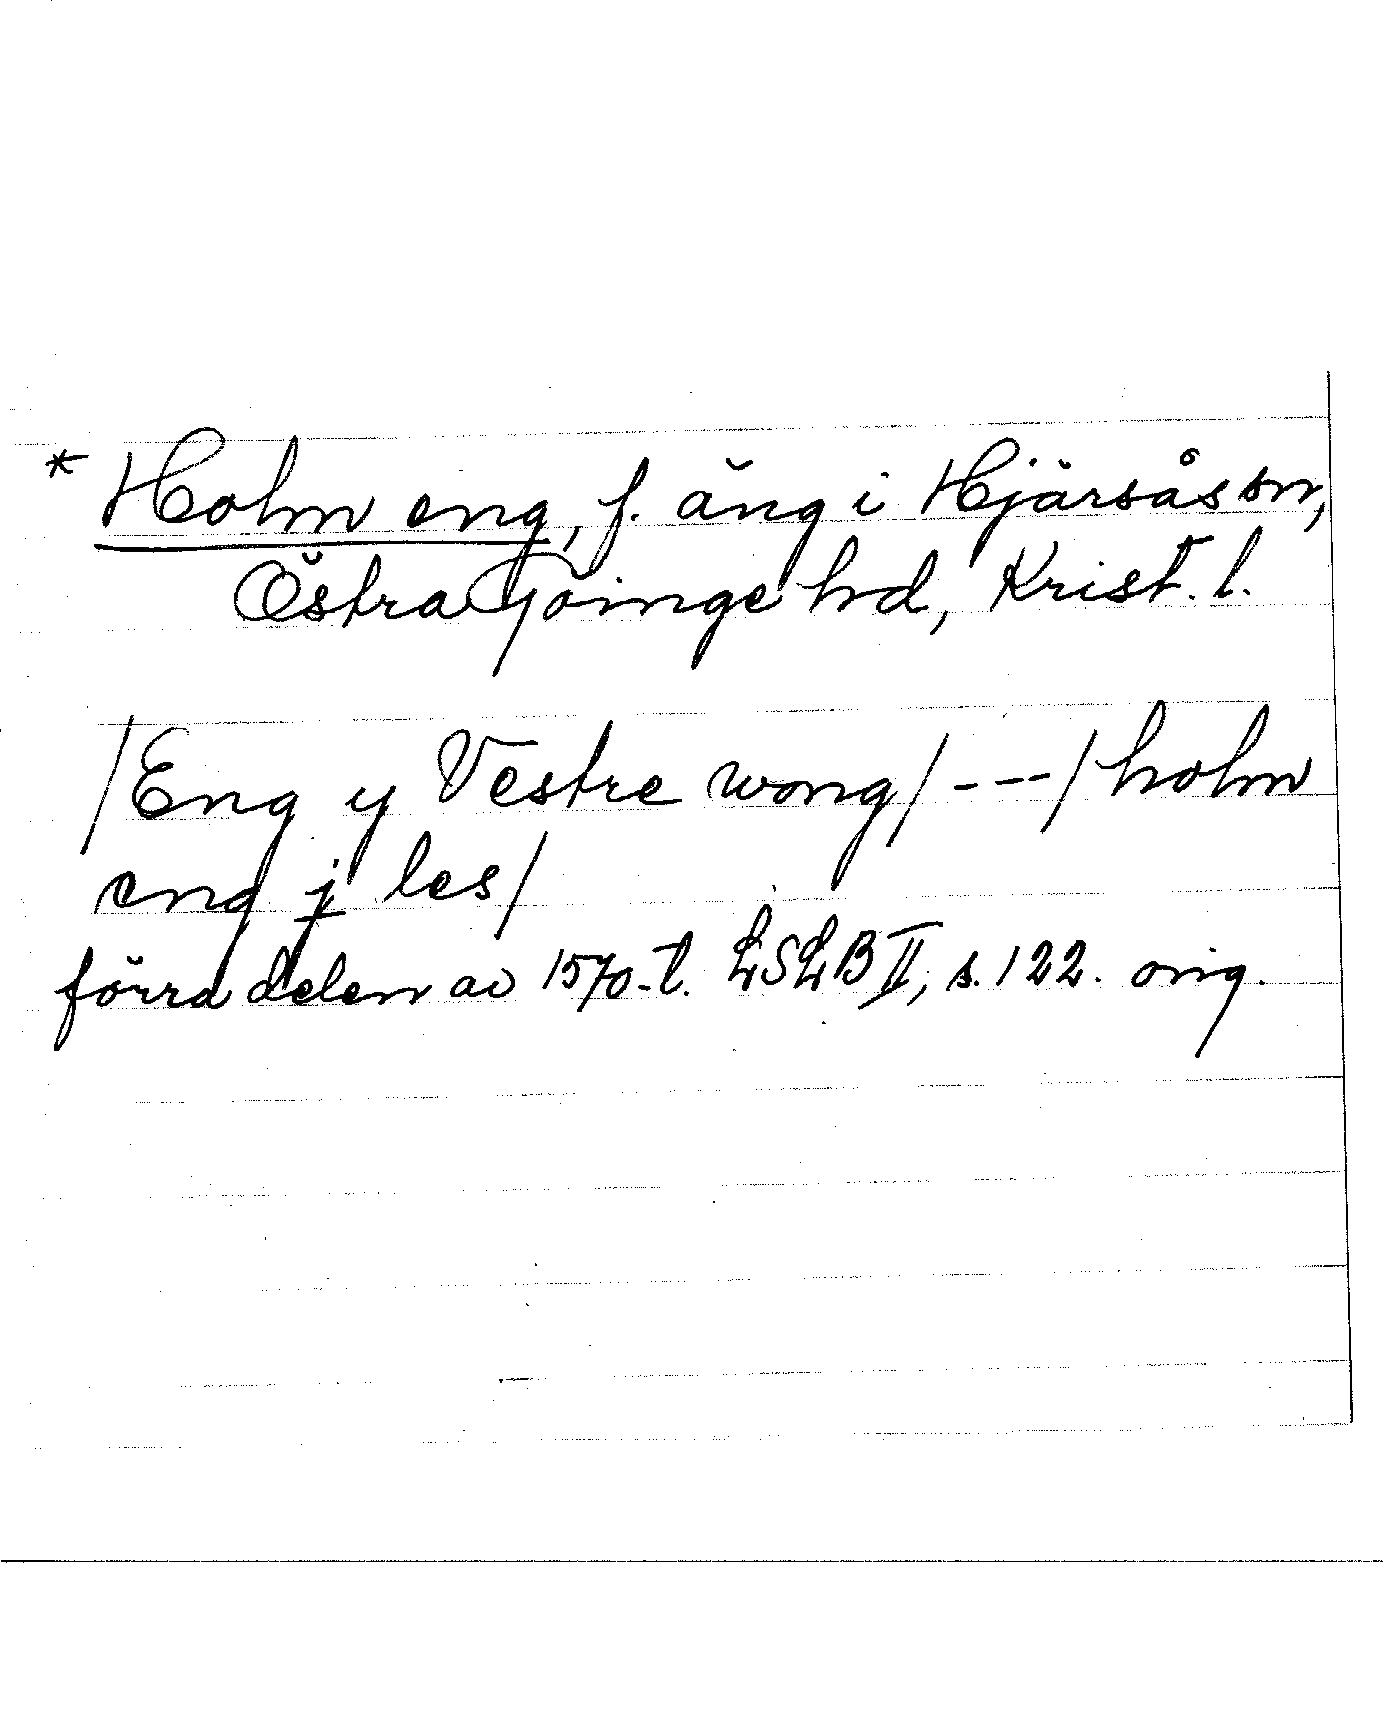 * Holm eng, f. äng i Hjärsås sn,
Östra Göinge hd, Krist. l.
/Eng y Vestre wong/ --- /holm
eng j les/
förra delen av 1570-t. LSLB II, s. 122. orig.